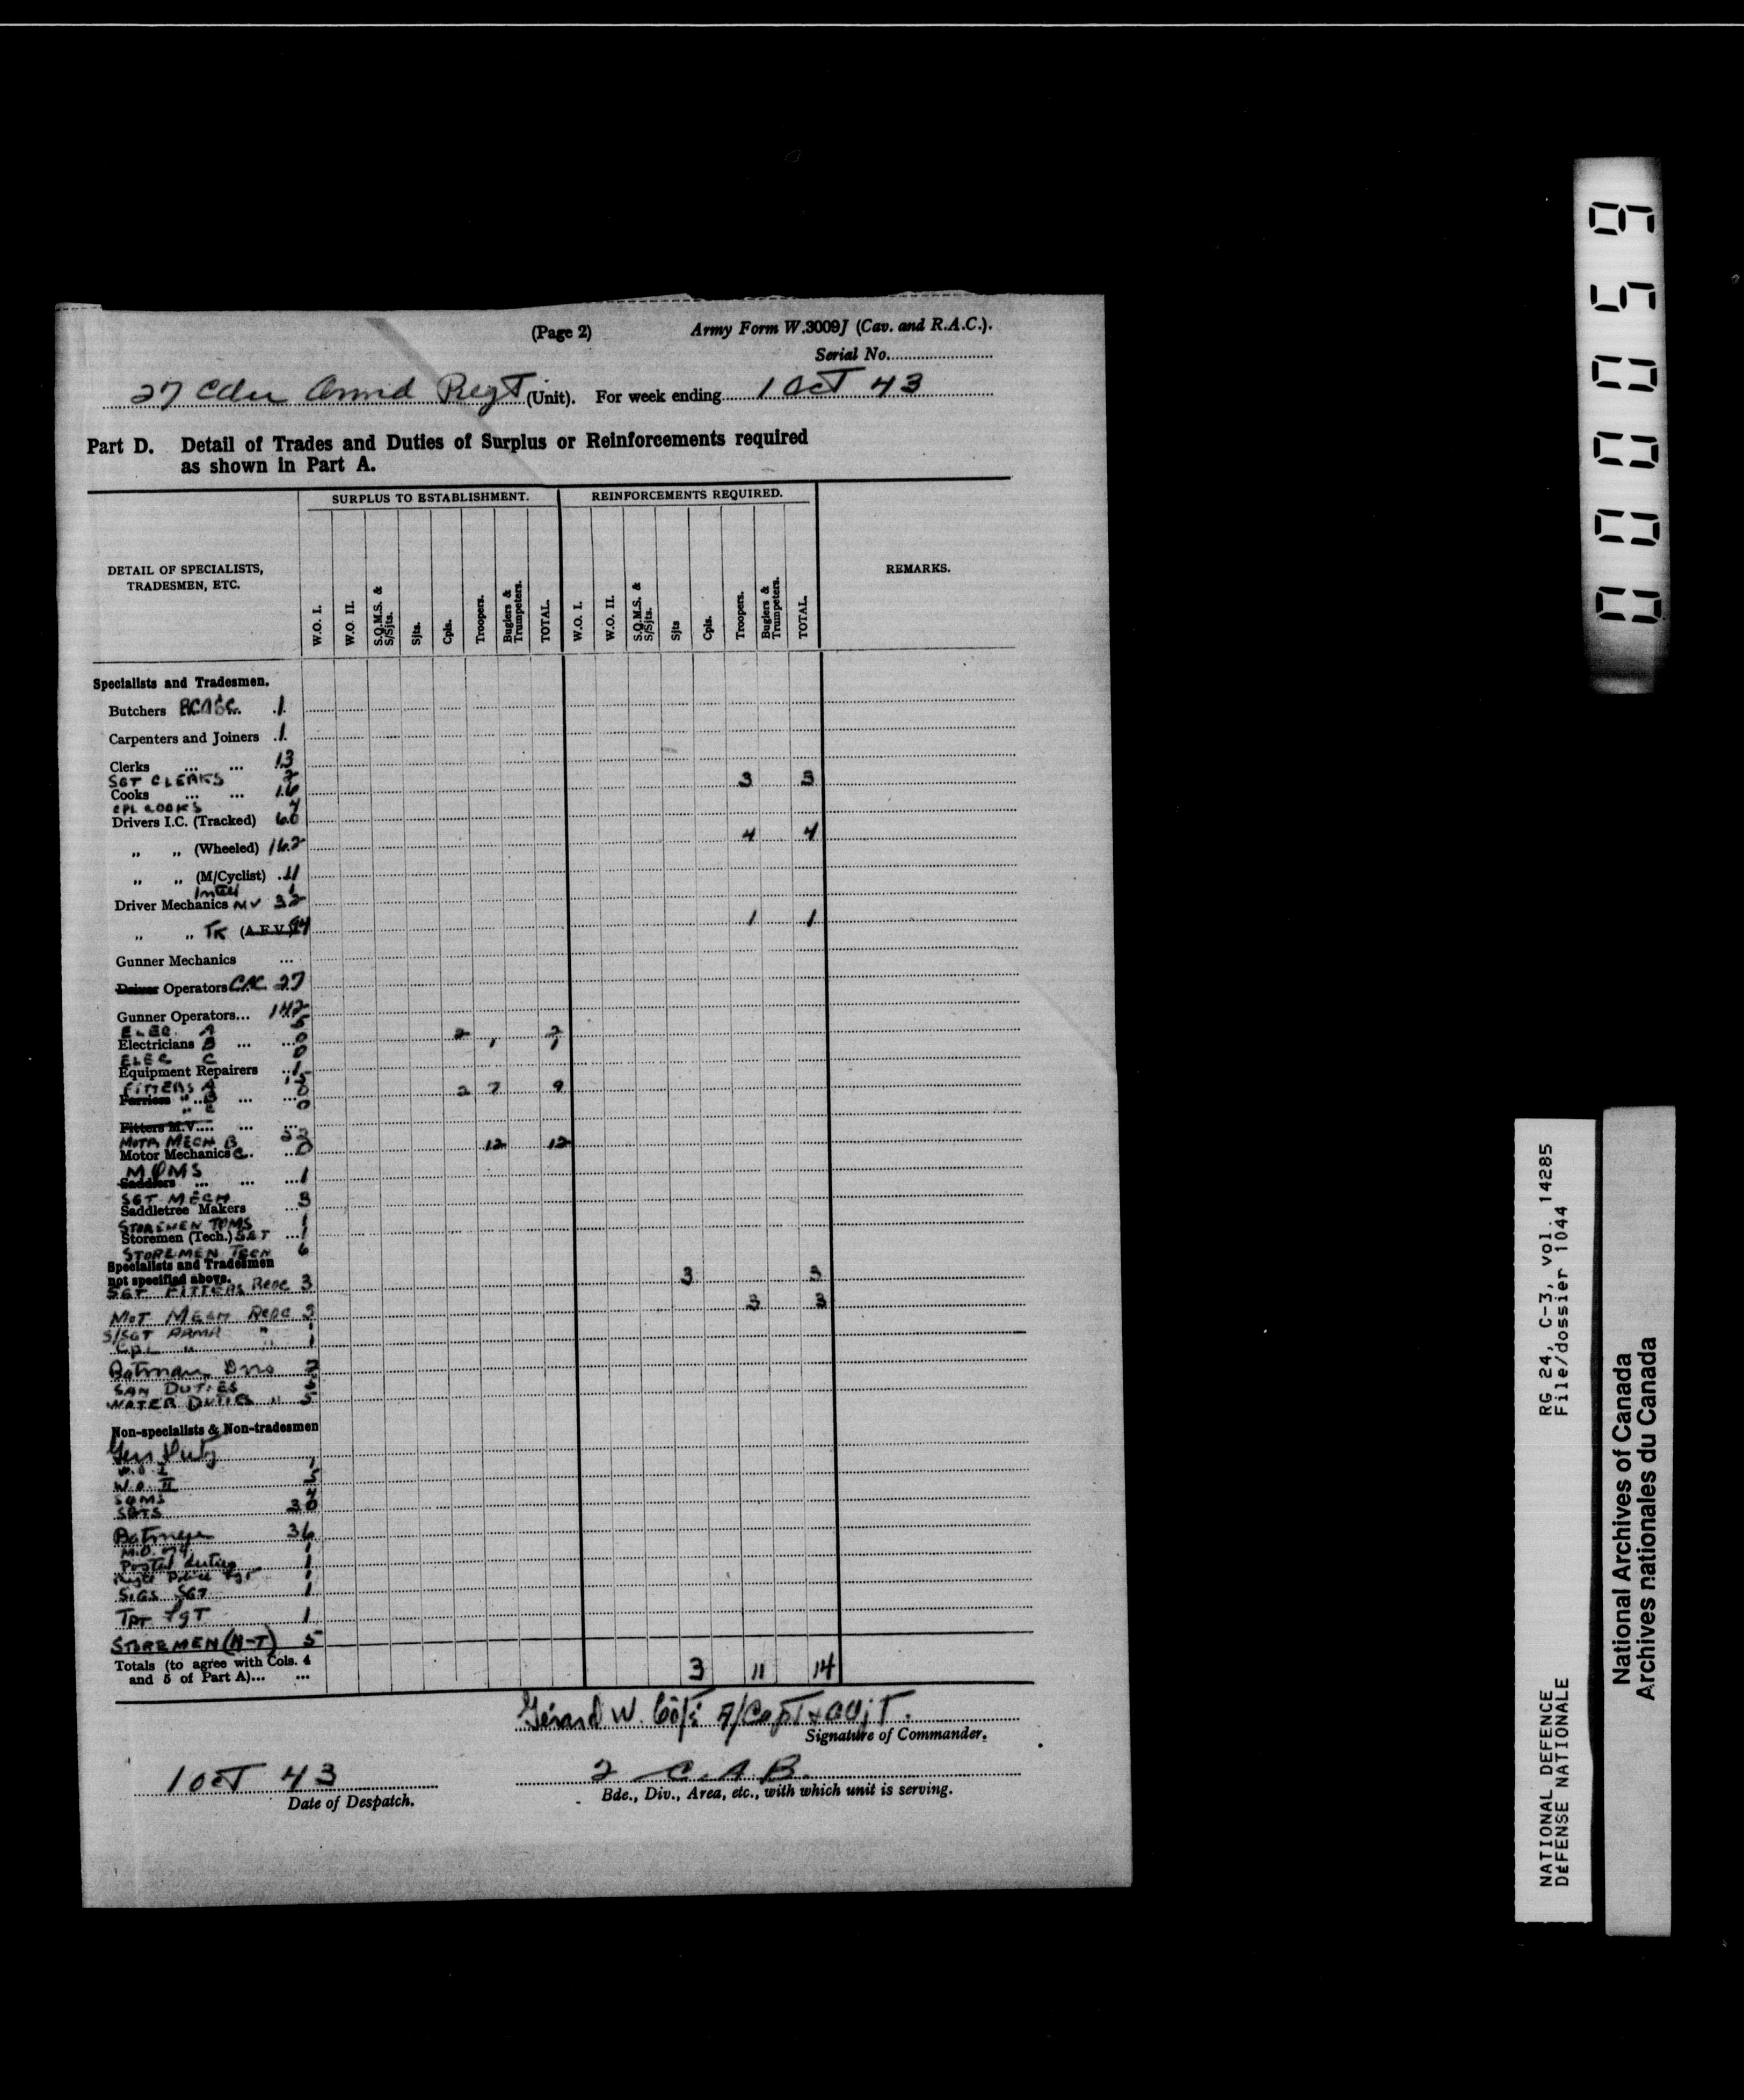 (Page 2) Army Form W.3009J (Cav. and R.A.C.).
Serial No.
27 Cdn Armd Regt (Unit). For week ending 1 Oct 43
Part D. Detail of Trades and Duties of Surplus or Reinforcements required
as shown in Part A.
SURPLUS TO ESTABLISHMENT. REINFORCEMENTS REQUIRED.
DETAIL OF SPECIALISTS,
TRADESMEN, ETC.
W.O. I. W.O. II. S.Q.M.S. & S/Sjts. Sjts. Cpls. Troopers. Buglers & Trumpeters. TOTAL. W.O. I. W.O. II. S.Q.M.S. & S/Sjts. Sjts Cpls. Troopers. Buglers & Trumpeters. TOTAL. REMARKS.
Specialists and Tradesmen.
Butchers RCASC 1
Carpenters and Joiners 1
Clerks ... ... 13
SGT CLERKS 2 3 3
Cooks ... ... 16
CPL COOKS 4
Drivers I.C. (Tracked) 60
„ „ (Wheeled) 162 4 4
„ „ (M/Cyclist) 11
Intell 1
Driver Mechanics MV 32
„ „ TK (A.F.V.) 94 1 1
Gunner Mechanics ...
Driver Operators C.N.C. 27
Gunner Operators... 142
ELEC. A 5 2 2
Electricians B ... ...0 1 1
ELEC C 0
Equipment Repairers ...1
FITTERS A 15 2 7 9
Farriers " B ... ...0
" C 0
Fitters M.V.... ... ...
MOTR MECH B 53
Motor Mechanics C. ...0 12 12
MQMS
Saddlers ... ... ...1
SGT MECH
Saddletree Makers ...3
STOREMEN TQMS 1
Storemen (Tech.) SGT ...1
STOREMEN TECH 6
Specialists and Tradesmen
not specified above. 3 3
SGT FITTERS Reoc 3
MOT MECH Reoc 3 3 3
S/SGT ARMR " 1
CPL " " 1
Batman Dvrs 2
SAN DUTIES
WATER DUTIES " 5
Non-specialists & Non-tradesmen
Gen Duty
W.O. I 1
W.O. II 5
SQMS 4
SGTS 30
Batmen 36
M.O. Ord 1
Postal duties 1
Regt Police Sgt 1
SIGS SGT 1
TPT SgT 1
STOREMEN (N-T) 5
Totals (to agree with Cols. 4
and 5 of Part A)... ... 3 11 14
Gérard W. Côté A/Capt & Adjt.
Signature of Commander.
1 Oct 43 2 C.A.B.
Date of Despatch. Bde., Div., Area, etc., with which unit is serving.
000059
RG 24, C-3, vol. 14285
File/dossier 1044
NATIONAL DEFENCE
DÉFENSE NATIONALE
National Archives of Canada
Archives nationales du Canada